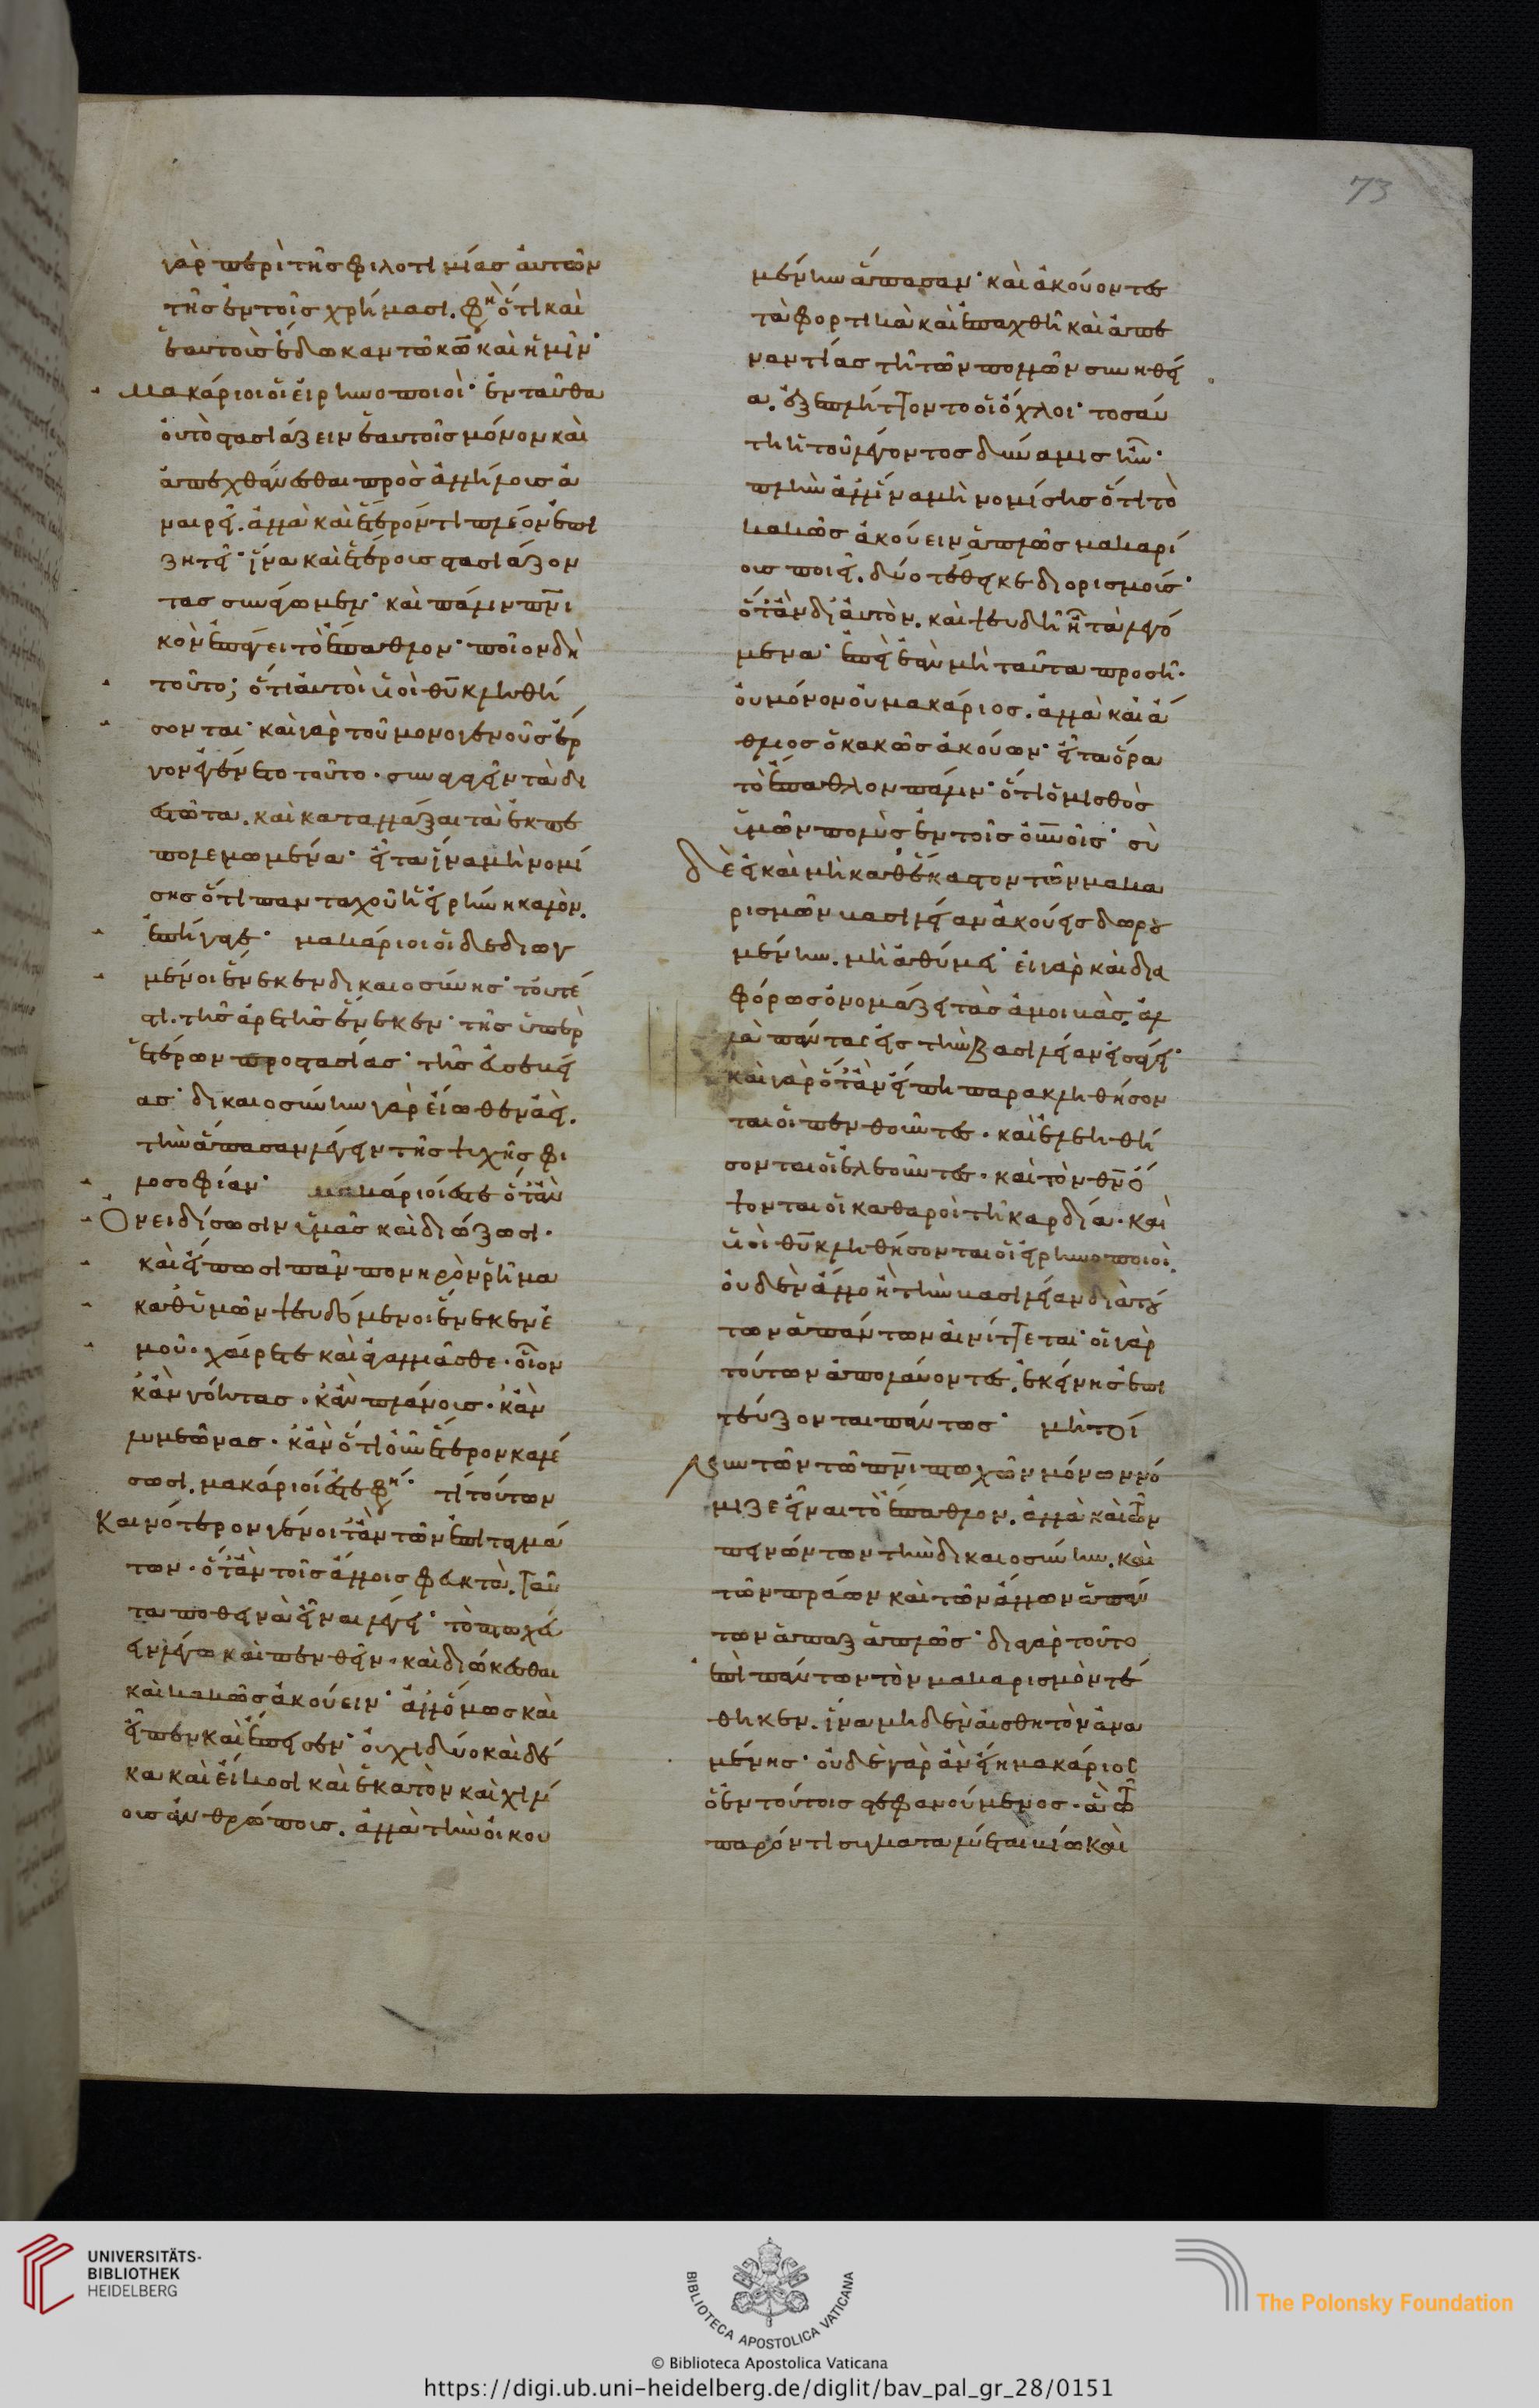 73
γὰρ περὶ τῆς φιλοτιμίας αὐτῶν
τῆς ἐν τοῖς χρήμασι. φη ὅτι καὶ
ἑαυτοὺς ἔδωκαν τῶ κω καὶ ἡμῖν·
Μακάριοι οἱ εἰρηνοποιοὶ· ἐνταῦθα
οὐ τὸ στασιάζειν ἑαυτοῖς μόνον καὶ
ἀπεχθάνεσθαι πρὸς ἀλλήλους ἀ
ναιρεῖ. ἀλλὰ καὶ ἕτερόν τι πλέον ἐπι
ζητεῖ· ἵνα καὶ ἑτέρους στασιάζον
τας συνάγωμεν· καὶ πάλιν πνι
κὸν ἐπάγει τὸ ἔπαθλον· ποῖον δὴ
τοῦτο; ὅτι αὐτοὶ υἱοὶ θυ κληθή
σονται· καὶ γὰρ τοῦ μονογενοῦς ἔρ
γον ἐγένετο τοῦτο. συναγαγεῖν τὰ δι
εστῶτα. καὶ καταλλάξαι τὰ ἐκπε
πολεμωμένα· εἶτα ἵνα μὴ νομί
σης ὅτι πανταχοῦ ἡ εἰρήνη καλὸν.
ἐπήγαγε· μακάριοι οἱ δεδιωγ
μένοι ἕνεκεν δικαιοσύνης· τουτέ
στι. τῆς ἀρετῆς ἕνεκεν· τῆς ὑπὲρ
ἑτέρων προστασίας· τῆς εὐσεβεί
ας· δικαιοσύνην γὰρ εἴωθεν ἀεὶ.
τὴν ἅπασαν λέγειν τῆς ψυχῆς φι
λοσοφίαν· μακάριοί ἐστε ὅταν
Ονειδίσωσιν ὑμᾶς καὶ διώξωσι.
καὶ εἴπωσι πᾶν πονηρὸν ῥῆμα
καθ' ὑμῶν ψευδόμενοι ἕνεκεν ἐ
μοῦ. χαίρετε καὶ ἀγαλλιᾶσθε. οἷον
κἂν γόητας. κἂν πλάνους. κἂν
λυμεῶνας. κἂν ὁτιοῦν ἕτερον καλέ
σωσι. μακάριοί ἐστε φη· τί τούτων
Καινότερον γένοιτ' ἂν τῶν ἐπιταγμά
των. ὅταν τοῖς ἄλλοις φευκτὰ. ταῦ
τα ποθεινὰ εἶναι λέγει· τὸ πτωχεύ
ειν λέγω καὶ πενθεῖν. καὶ διώκεσθαι
καὶ κακῶς ἀκούειν· ἀλλ' ὅμως καὶ
εἶπεν καὶ ἔπεισεν· οὐχὶ δύο καὶ δέ
κα καὶ εἴκοσι καὶ ἑκατὸν καὶ χιλί
οις ἀνθρώποις. ἀλλὰ τὴν οἰκου
μένην ἅπασαν· καὶ ἀκούοντες
τὰ φορτικὰ καὶ ἐπαχθῆ καὶ ἀπε
ναντίας τῆ τῶν πολλῶν συνηθεί
α. ἐξεπλήττοντο οἱ ὄχλοι· τοσαύ
τη ἡ τοῦ λέγοντος δύναμις ἦν·
πλὴν ἀλλ' ἵνα μὴ νομίσης ὅτι τὸ
κακῶς ἀκούειν ἁπλῶς μακαρί
ους ποιεῖ. δύο τέθεικε διορισμούς·
ὅταν δι' αὐτὸν. καὶ ψευδῆ ἦ τὰ λεγό
μενα· ἐπεὶ ἐὰν μὴ ταῦτα προσῆ.
οὐ μόνον οὐ μακάριος. ἀλλὰ καὶ ἄ
θλιος ὁ κακῶς ἀκούων· εἶτα ὅρα
τὸ ἔπαθλον πάλιν· ὅτι ὁ μισθὸς
ὑμῶν πολὺς ἐν τοῖς οὐνοῖς· σὺ
δὲ εἰ καὶ μὴ καθ' ἕκαστον τῶν μακα
ρισμῶν βασιλείαν ἀκούεις δωρου
μένην. μὴ ἀθύμει· εἰ γὰρ καὶ δια
φόρως ὀνομάζει τὰς ἀμοιβὰς. ἀλ
λὰ πάντας εἰς τὴν βασιλείαν εἰσάγει·
καὶ γὰρ ὅταν εἴπη παρακληθήσον
ται οἱ πενθοῦντες. καὶ ἐλεηθή
σονται οἱ ἐλεοῦντες. καὶ τὸν θν ὄ
ψονται οἱ καθαροὶ τῆ καρδία. καὶ
υἱοὶ θυ κληθήσονται οἱ εἰρηνοποιοὶ.
οὐδὲν ἄλλο ἢ τὴν βασιλείαν διὰ τού
των ἁπάντων αἰνίττεται· οἱ γὰρ
τούτων ἀπολαύοντες. ἐκείνης ἐπι
τεύξονται πάντως· μὴ τοί
νυν τῶν τῶ πνι πτωχῶν μόνων νό
μιζε εἶναι τὸ ἔπαθλον. ἀλλὰ καὶ τῶν
πεινώντων τὴν δικαιοσύνην. καὶ
τῶν πράων καὶ τῶν ἄλλων ἁπάν
των ἅπαξ ἁπλῶς· διὰ γὰρ τοῦτο
ἐπὶ πάντων τὸν μακαρισμὸν τέ
θηκεν. ἵνα μηδὲν αἰσθητὸν ἀνα
μένης· οὐδὲ γὰρ ἂν εἴη μακάριος
ὁ ἐν τούτοις στεφανούμενος. ἃ τῶ
παρόντι συγκαταλύεται βίω καὶ
UNIVERSITÄTS-
BIBLIOTHEK
HEIDELBERG
BIBLIOTECA APOSTOLICA VATICANA
The Polonsky Foundation
© Biblioteca Apostolica Vaticana
https://digi.ub.uni-heidelberg.de/diglit/bav_pal_gr_28/0151